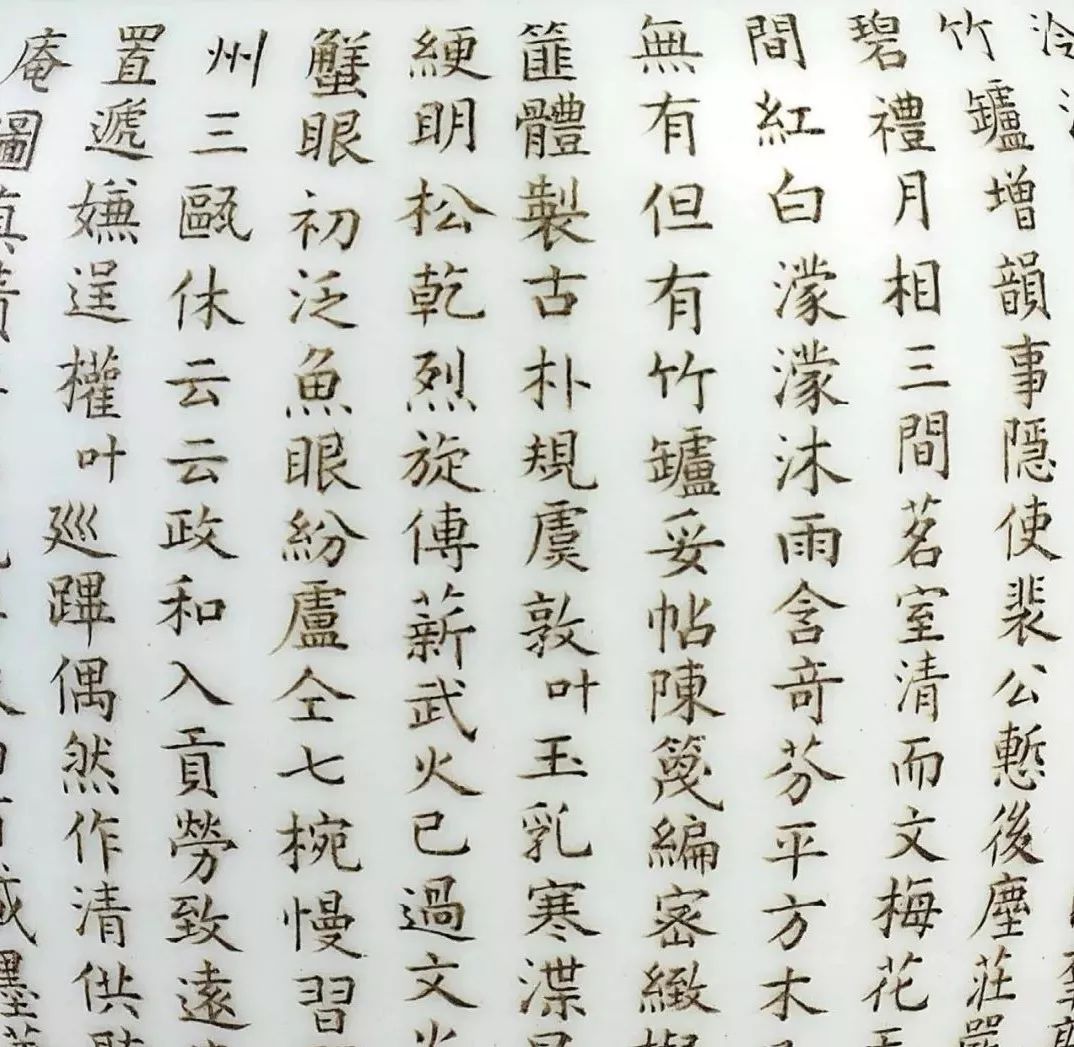 泠
竹罏增韻事隱使裴公慙後塵莊嚴
碧禮月相三間茗室清而文梅花
間紅白濛濛沐雨含奇芬平方木
無有但有竹罏妥帖陳篾編宻緻
篚體製古朴規虞敦叶玉乳寒渫
綆眀松乾烈旋傳薪武火已過文火
蟹眼初泛魚眼紛盧仝七椀慢習
州三甌休云云政和入貢勞致遠
置遞嫌逞權叶巡蹕偶然作清供
庵圖真